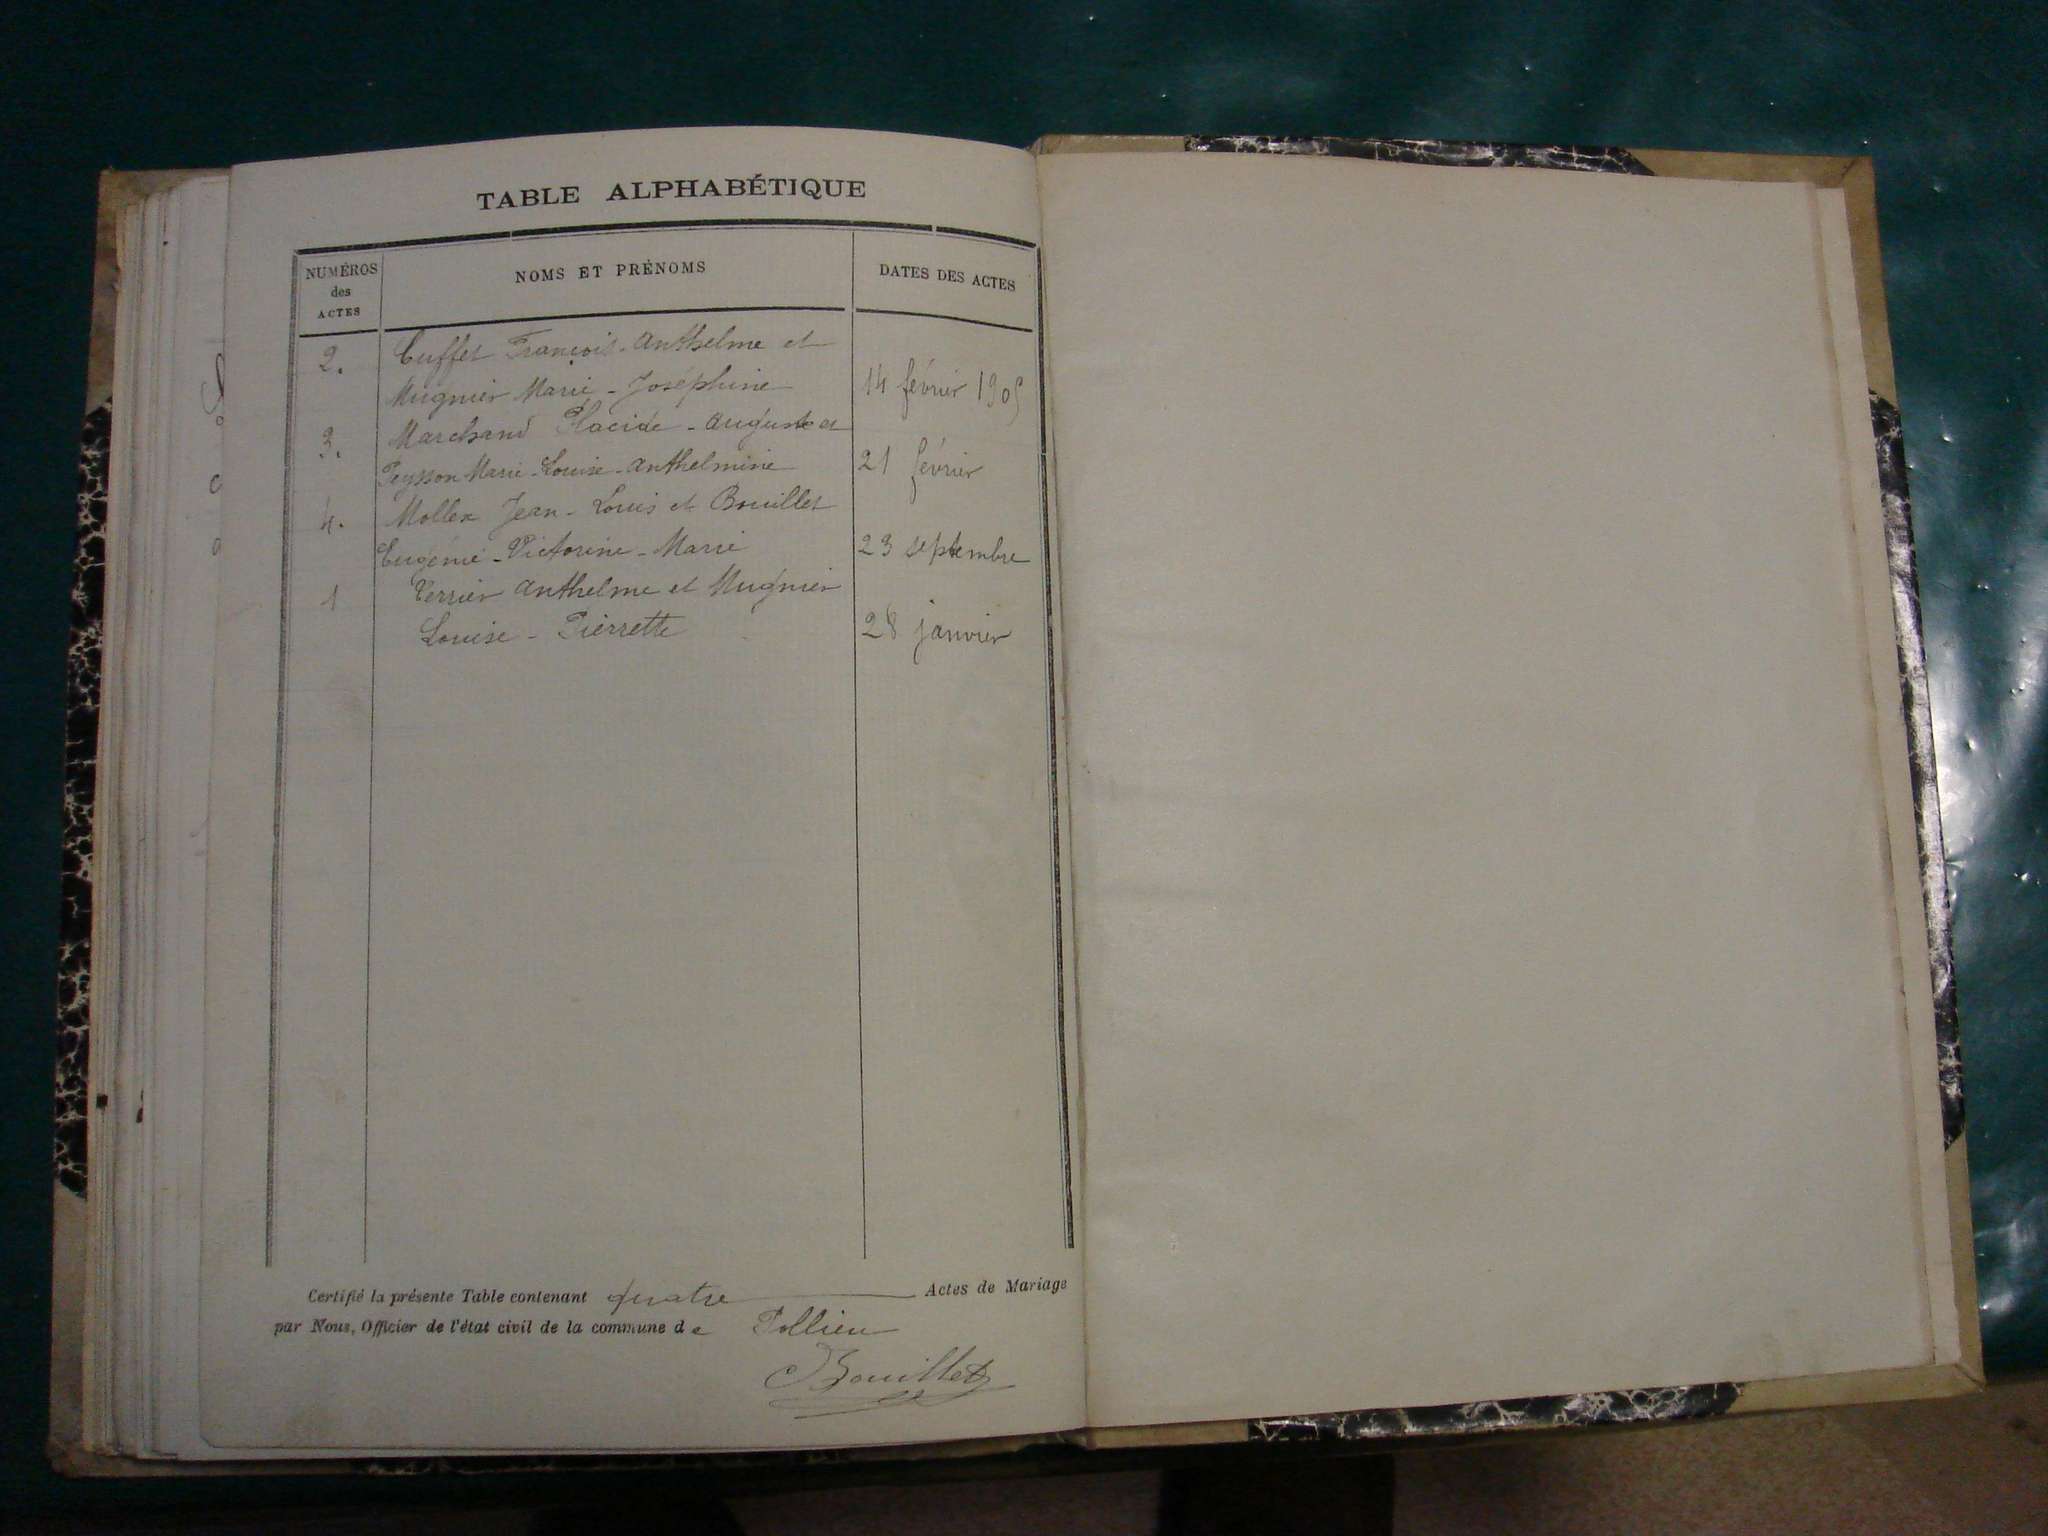 TABLE ALPHABÉTIQUE
NUMÉROS des ACTES
NOMS ET PRÉNOMS
DATES DES ACTES
2. Cuffet François-Anthelme et
Mugnier Marie-Joséphine 14 février 1905
3. Marchand Placide-Auguste et
Peysson Marie-Louise-Anthelmine 21 février
4. Mollex Jean-Louis et Bouillet
Eugénie-Victorine-Marie 23 septembre
1 Terrier Anthelme et Mugnier
Louise-Pierrette 28 janvier
Certifié la présente Table contenant quatre Actes de Mariage
par Nous, Officier de l'état civil de la commune de Pollieu
Bouillet